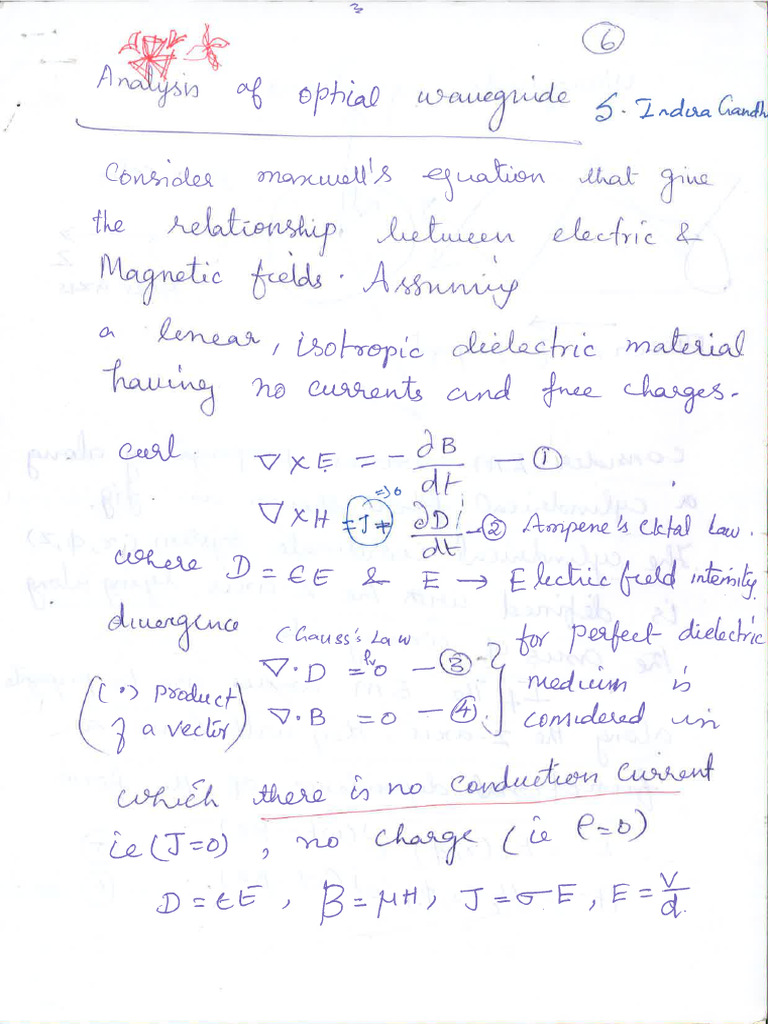 6
Analysis of optical waveguide S. Indira Gandh
Consider maxwell's equation that give
the relationship between electric &
Magnetic fields. Assuming
a linear, isotropic dielectric material
having no currents and free charges.
curl ∇ × E = - ∂B/dt — ①
∇ × H = J + ∂D/dt — ② Ampere's Cktal Law.
=> 0
where D = ϵE & E → Electric field intensity
divergence (Gauss's Law for perfect dielectric
∇·D = 0 — ③ medium is
ρv
((·) product of a vector) ∇·B = 0 — ④ considered in
which there is no conduction current
ie (J=0), no charge (ie ρ=0)
D = ϵE, B = μH, J = σE, E = V/d.